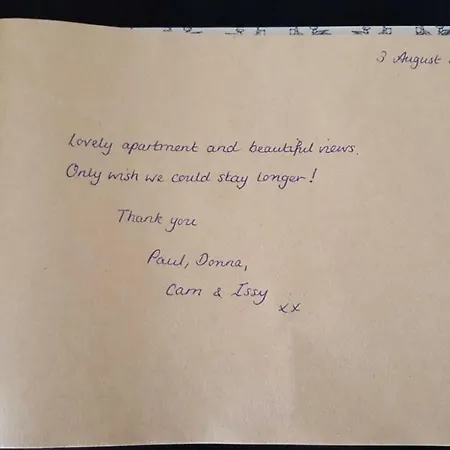 3 August
Lovely apartment and beautiful views.
Only wish we could stay longer!
Thank you
Paul, Donna,
Cam & Issy
xx